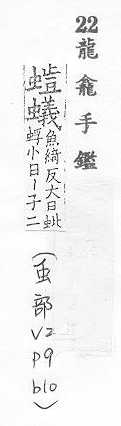 22龍龕手鑑
螘蟻魚綺反大曰蚍
蜉小曰丨子二
(虫部 V2 p9 b10)